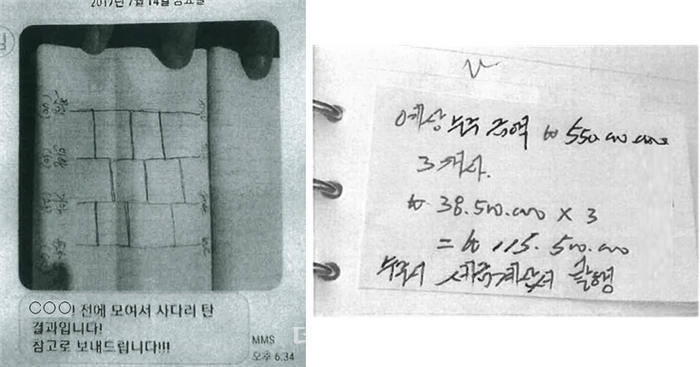 2017년 7월 14일 금요일
○○○! 전에 모여서 사다리 탄
결과입니다!
참고로 보내드립니다!!!
MMS
오후 6:34
예상 수주 금액 ₩ 550.000.000
3개사.
₩ 38.500.000 × 3
= ₩ 115.500.000
수주시 세금계산서 발행